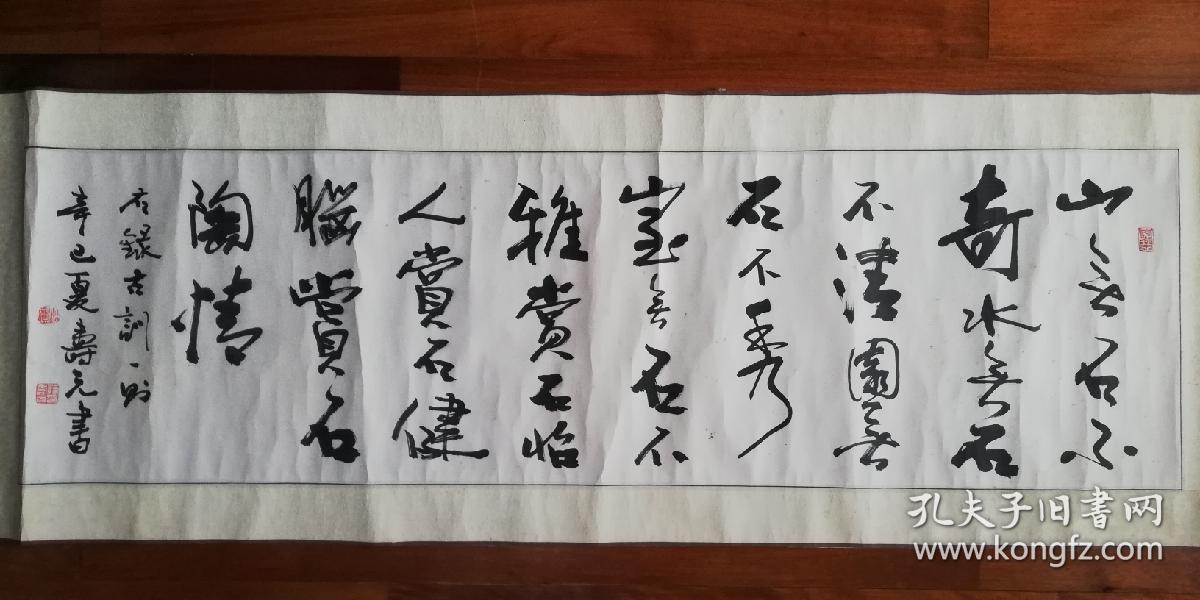 山无石不
奇水無石
不清園無
石不秀
室無石不
雅赏石怡
人赏石健
腦賞石
陶情
右録古訓一则
辛巳夏壽元書
孔夫子旧书网
www.kongfz.com